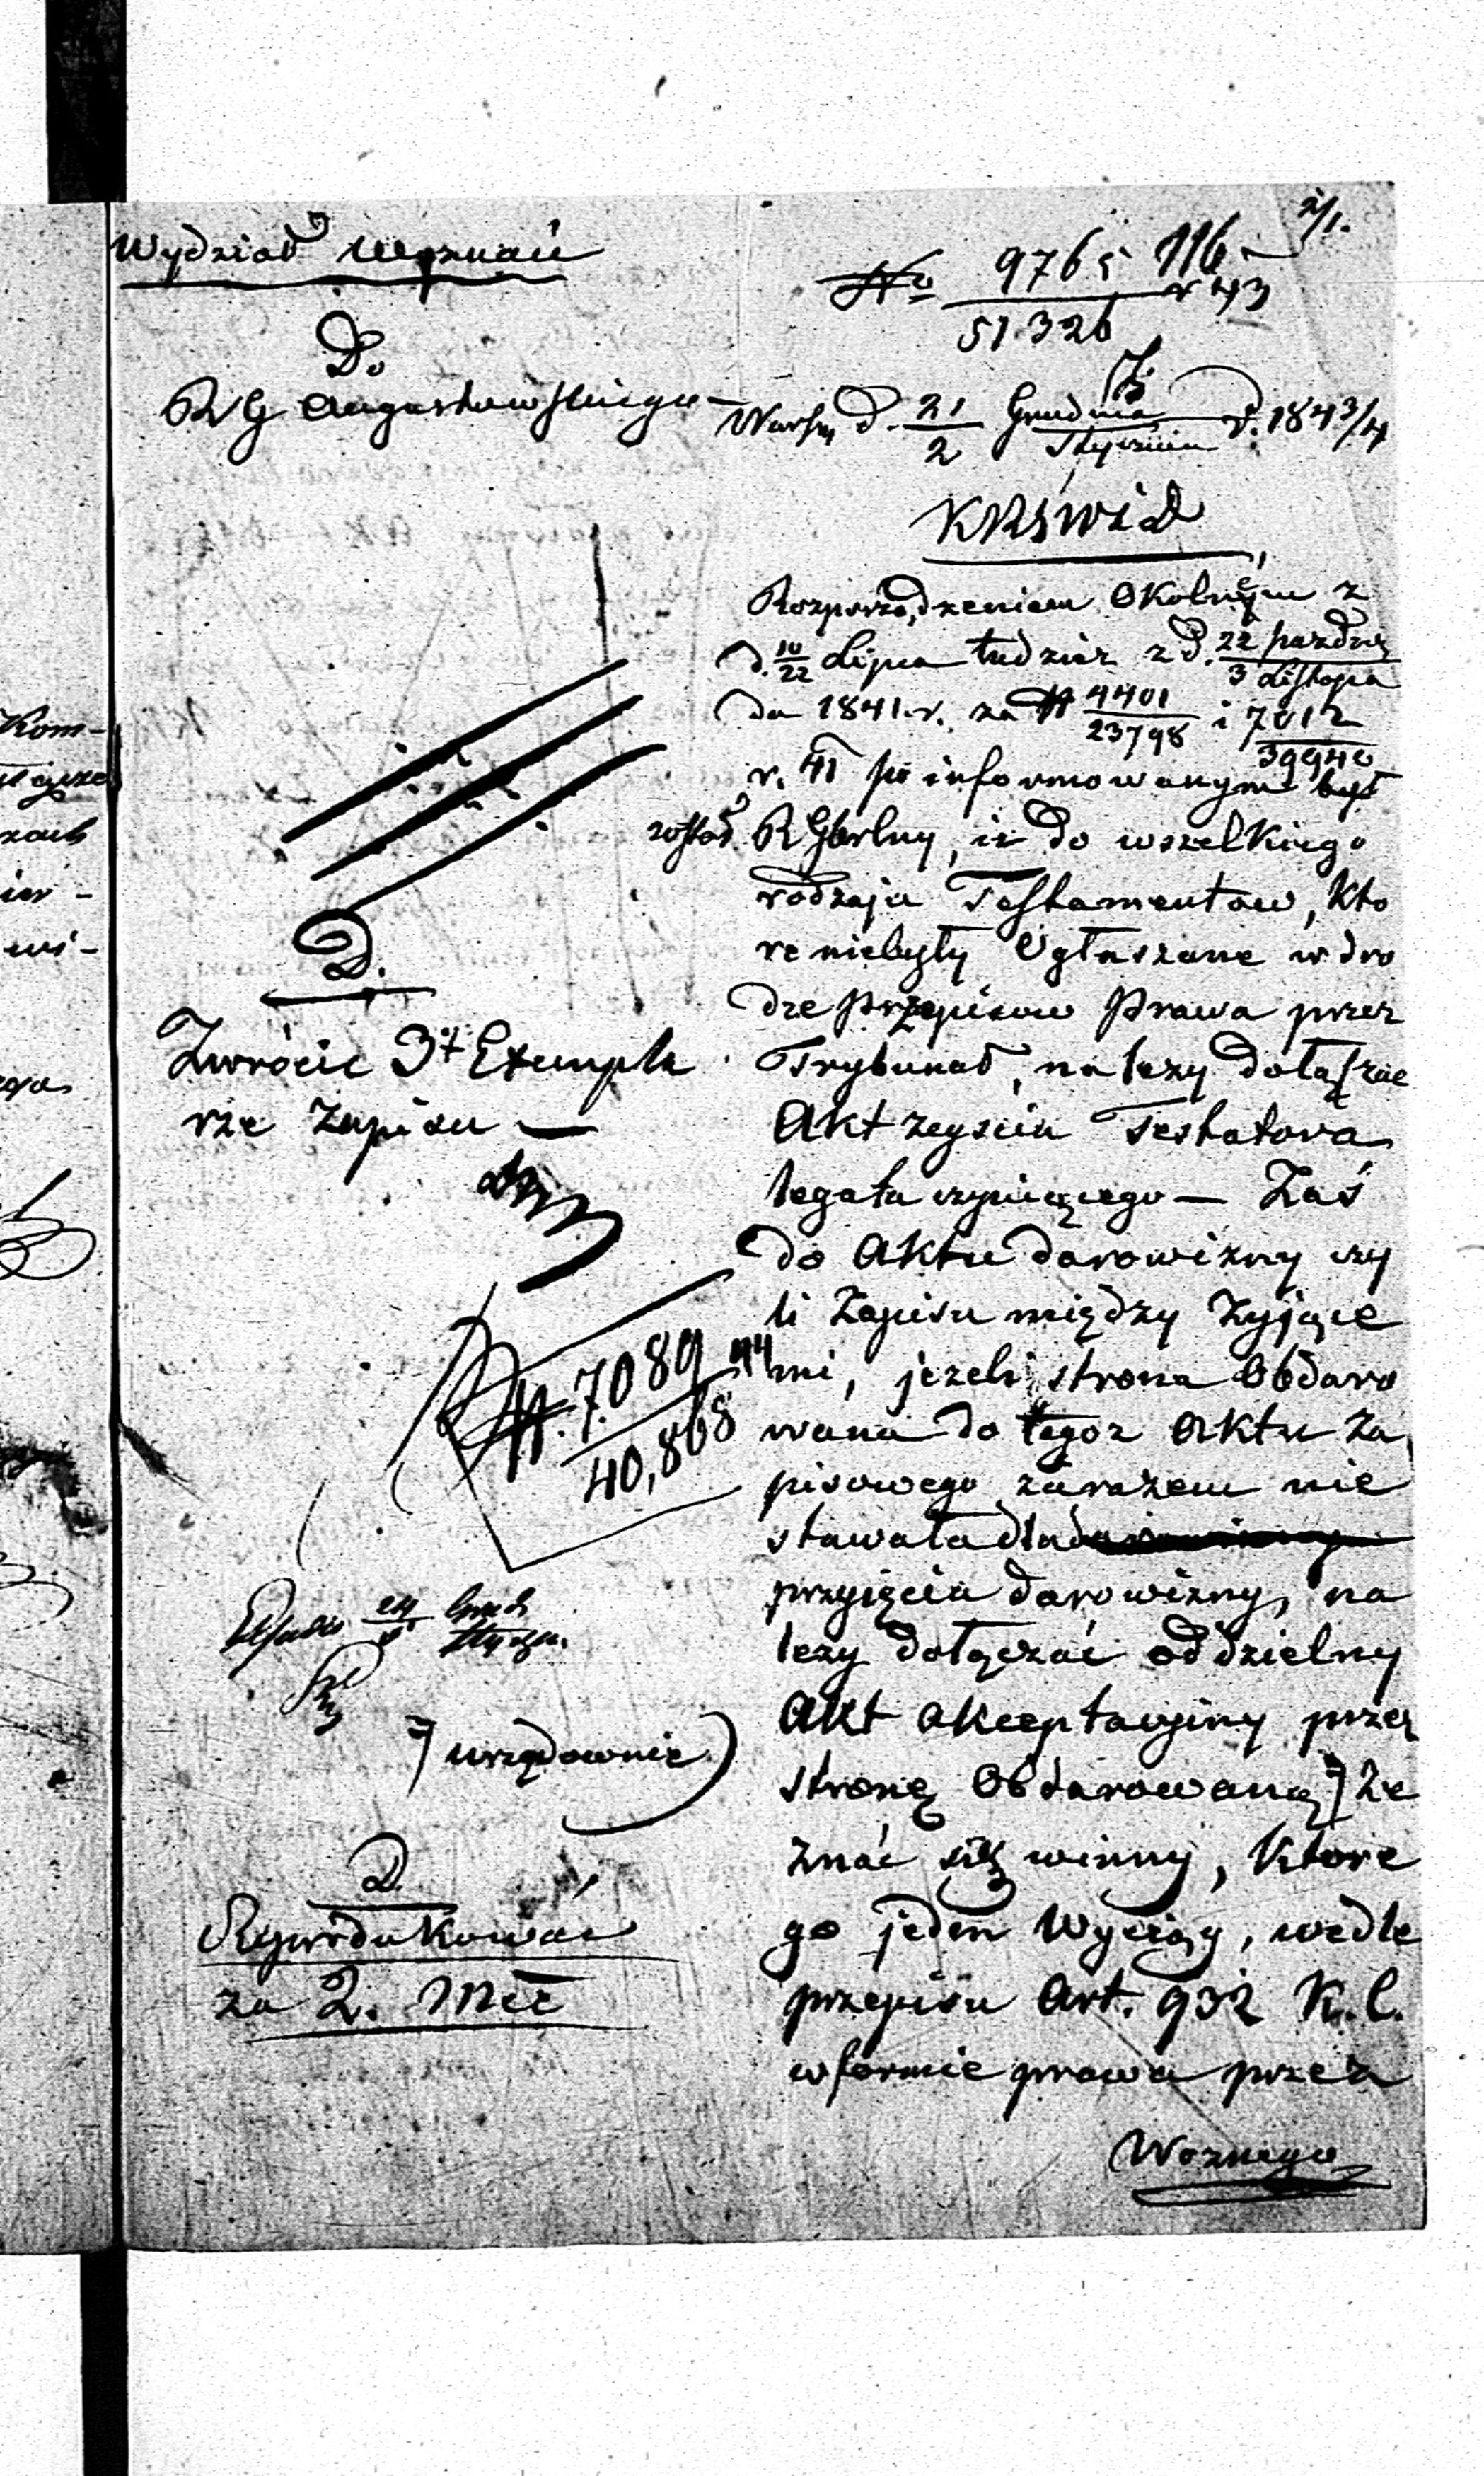 Wydział Wyznań
2/1.
No 9765 116
51326 r 43
Do
RG Augustowskiego
Warsz d. 21 Grudnia r. 1843/4
2 Stycznia
KRSWiD
Rozporządzeniem Okolnym z
d. 10/22 Lipca tudzież z d. 22 pazdzier
3 Listopa
da 1841. r. za N 4401 i 7012
23798 39940
r. 41 po informowanym był
został R Gberlny, iż do wszelkiego
rodzaju Testamentow, kto
re niebyły Ogłaszane w dro
dze przepisow Prawa przez
Trybunał, należy dołączac
Akt zeyscia Testatora
legata czyniącego — Zaś
do Aktu darowizny czy
li Zapisu między Zyjące
mi, jezeli strona Obdaro
wana do tegoz Aktu Za
pisowego zarazem nie
stawała dla
przyięcia darowizny, na
lezy dołączać oddzielny
Akt akceptacyiny przez
stronę Obdarowaną 7 Ze
znać się winny, Ktore
go jeden Wyciąg, wedle
przepisu Art. 932 K. C.
w formie prawa przez
Woznego
D.
Zwrócic 3 Exempla
rze Zapisu —
N. 7089 44
40,868
24 Grud
Stycz.
7 urzędownie
D.
Reprodukować
za 2. Mce
Kom-
zach
wi-